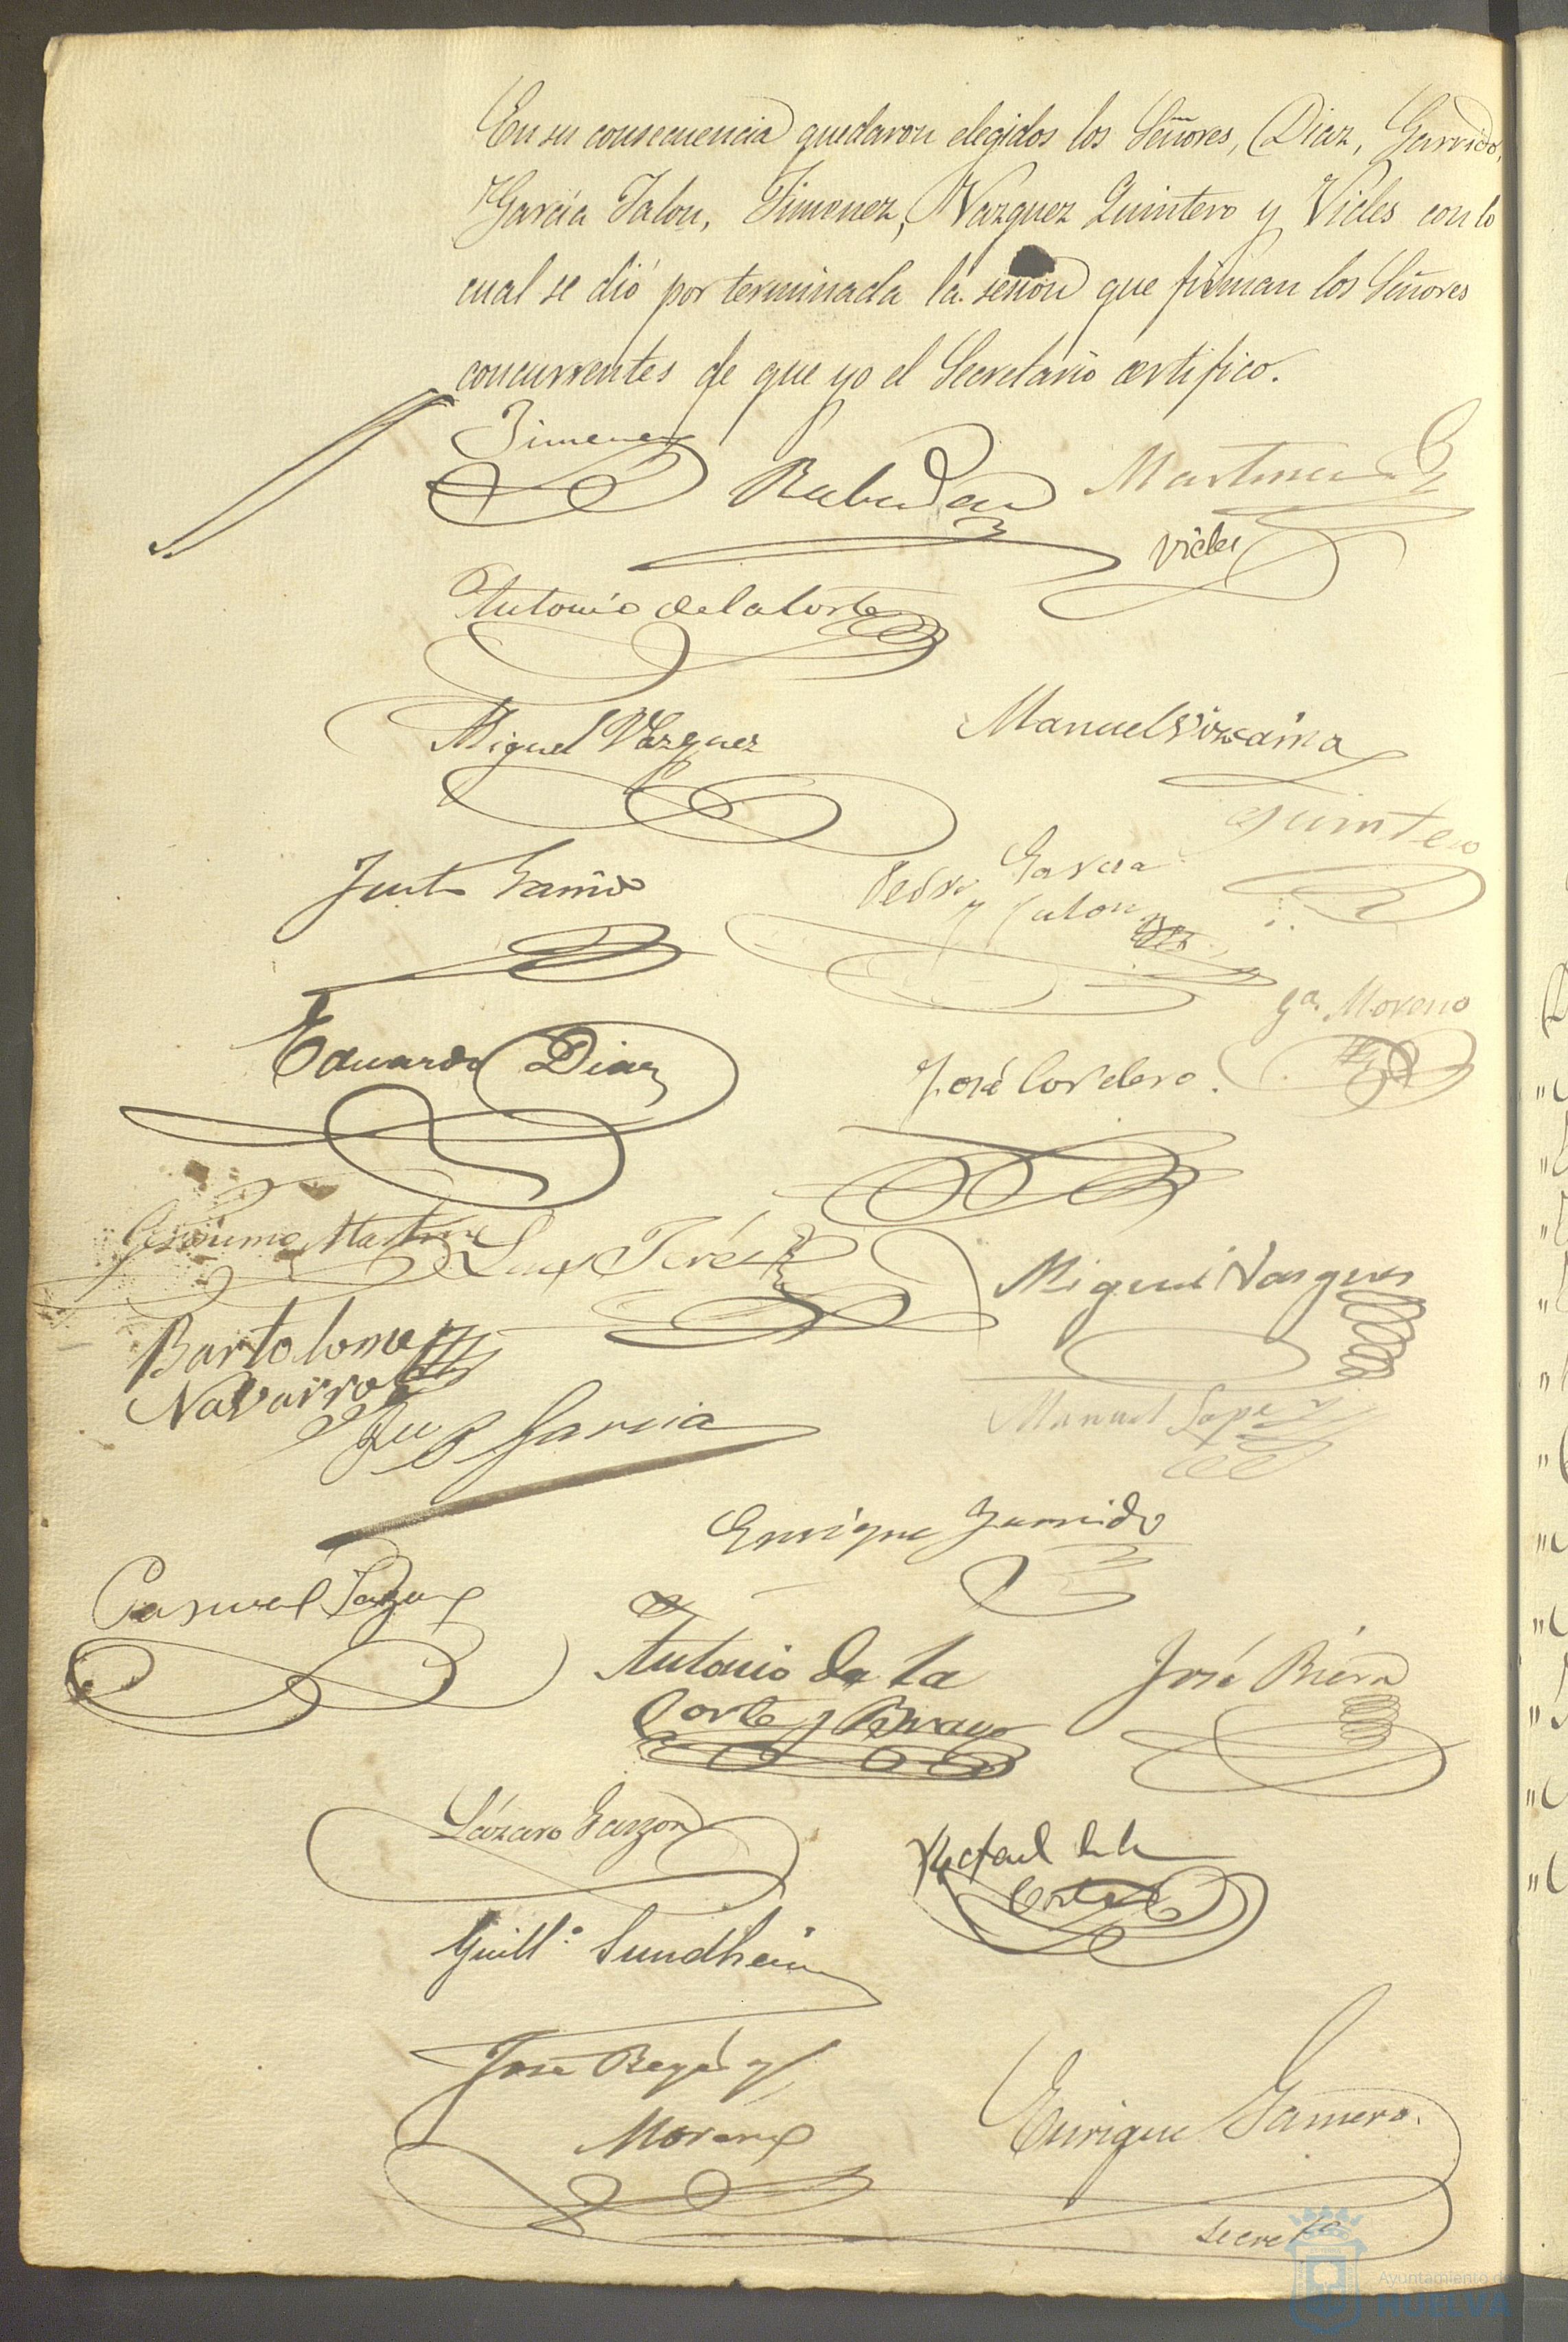 En su consecuencia quedaron elegidos los Señores, Diaz, Garrido,
Garcia Jalon, Jimenez, Vazquez Quintero y Vides con lo
cual se dió por terminada la sesion que firman los Señores
concurrentes de que yo el Secretario certifico.
Jimenez
Rabadan
Martinez
Vides
Antonio de la Corte
Miguel Vazquez
Manuel Vizcaino
Quintero
Justo Garrido
Pedro Garcia
y Jalon
Eduardo Diaz
Gª Moreno
José Cordero.
Geronimo Martin
Miguel Vazquez
Bartolome
Navarro
Garcia
Manuel Lopez
Enrique Garrido
Pascual
Antonio de la
Corte y Bravo
José Riera
Lázaro Garzon
Rafael de la
Corte
Guillº Sundheim
José y
Moreno
Enrique Gamero.
Secretº
Ayuntamiento de
HUELVA